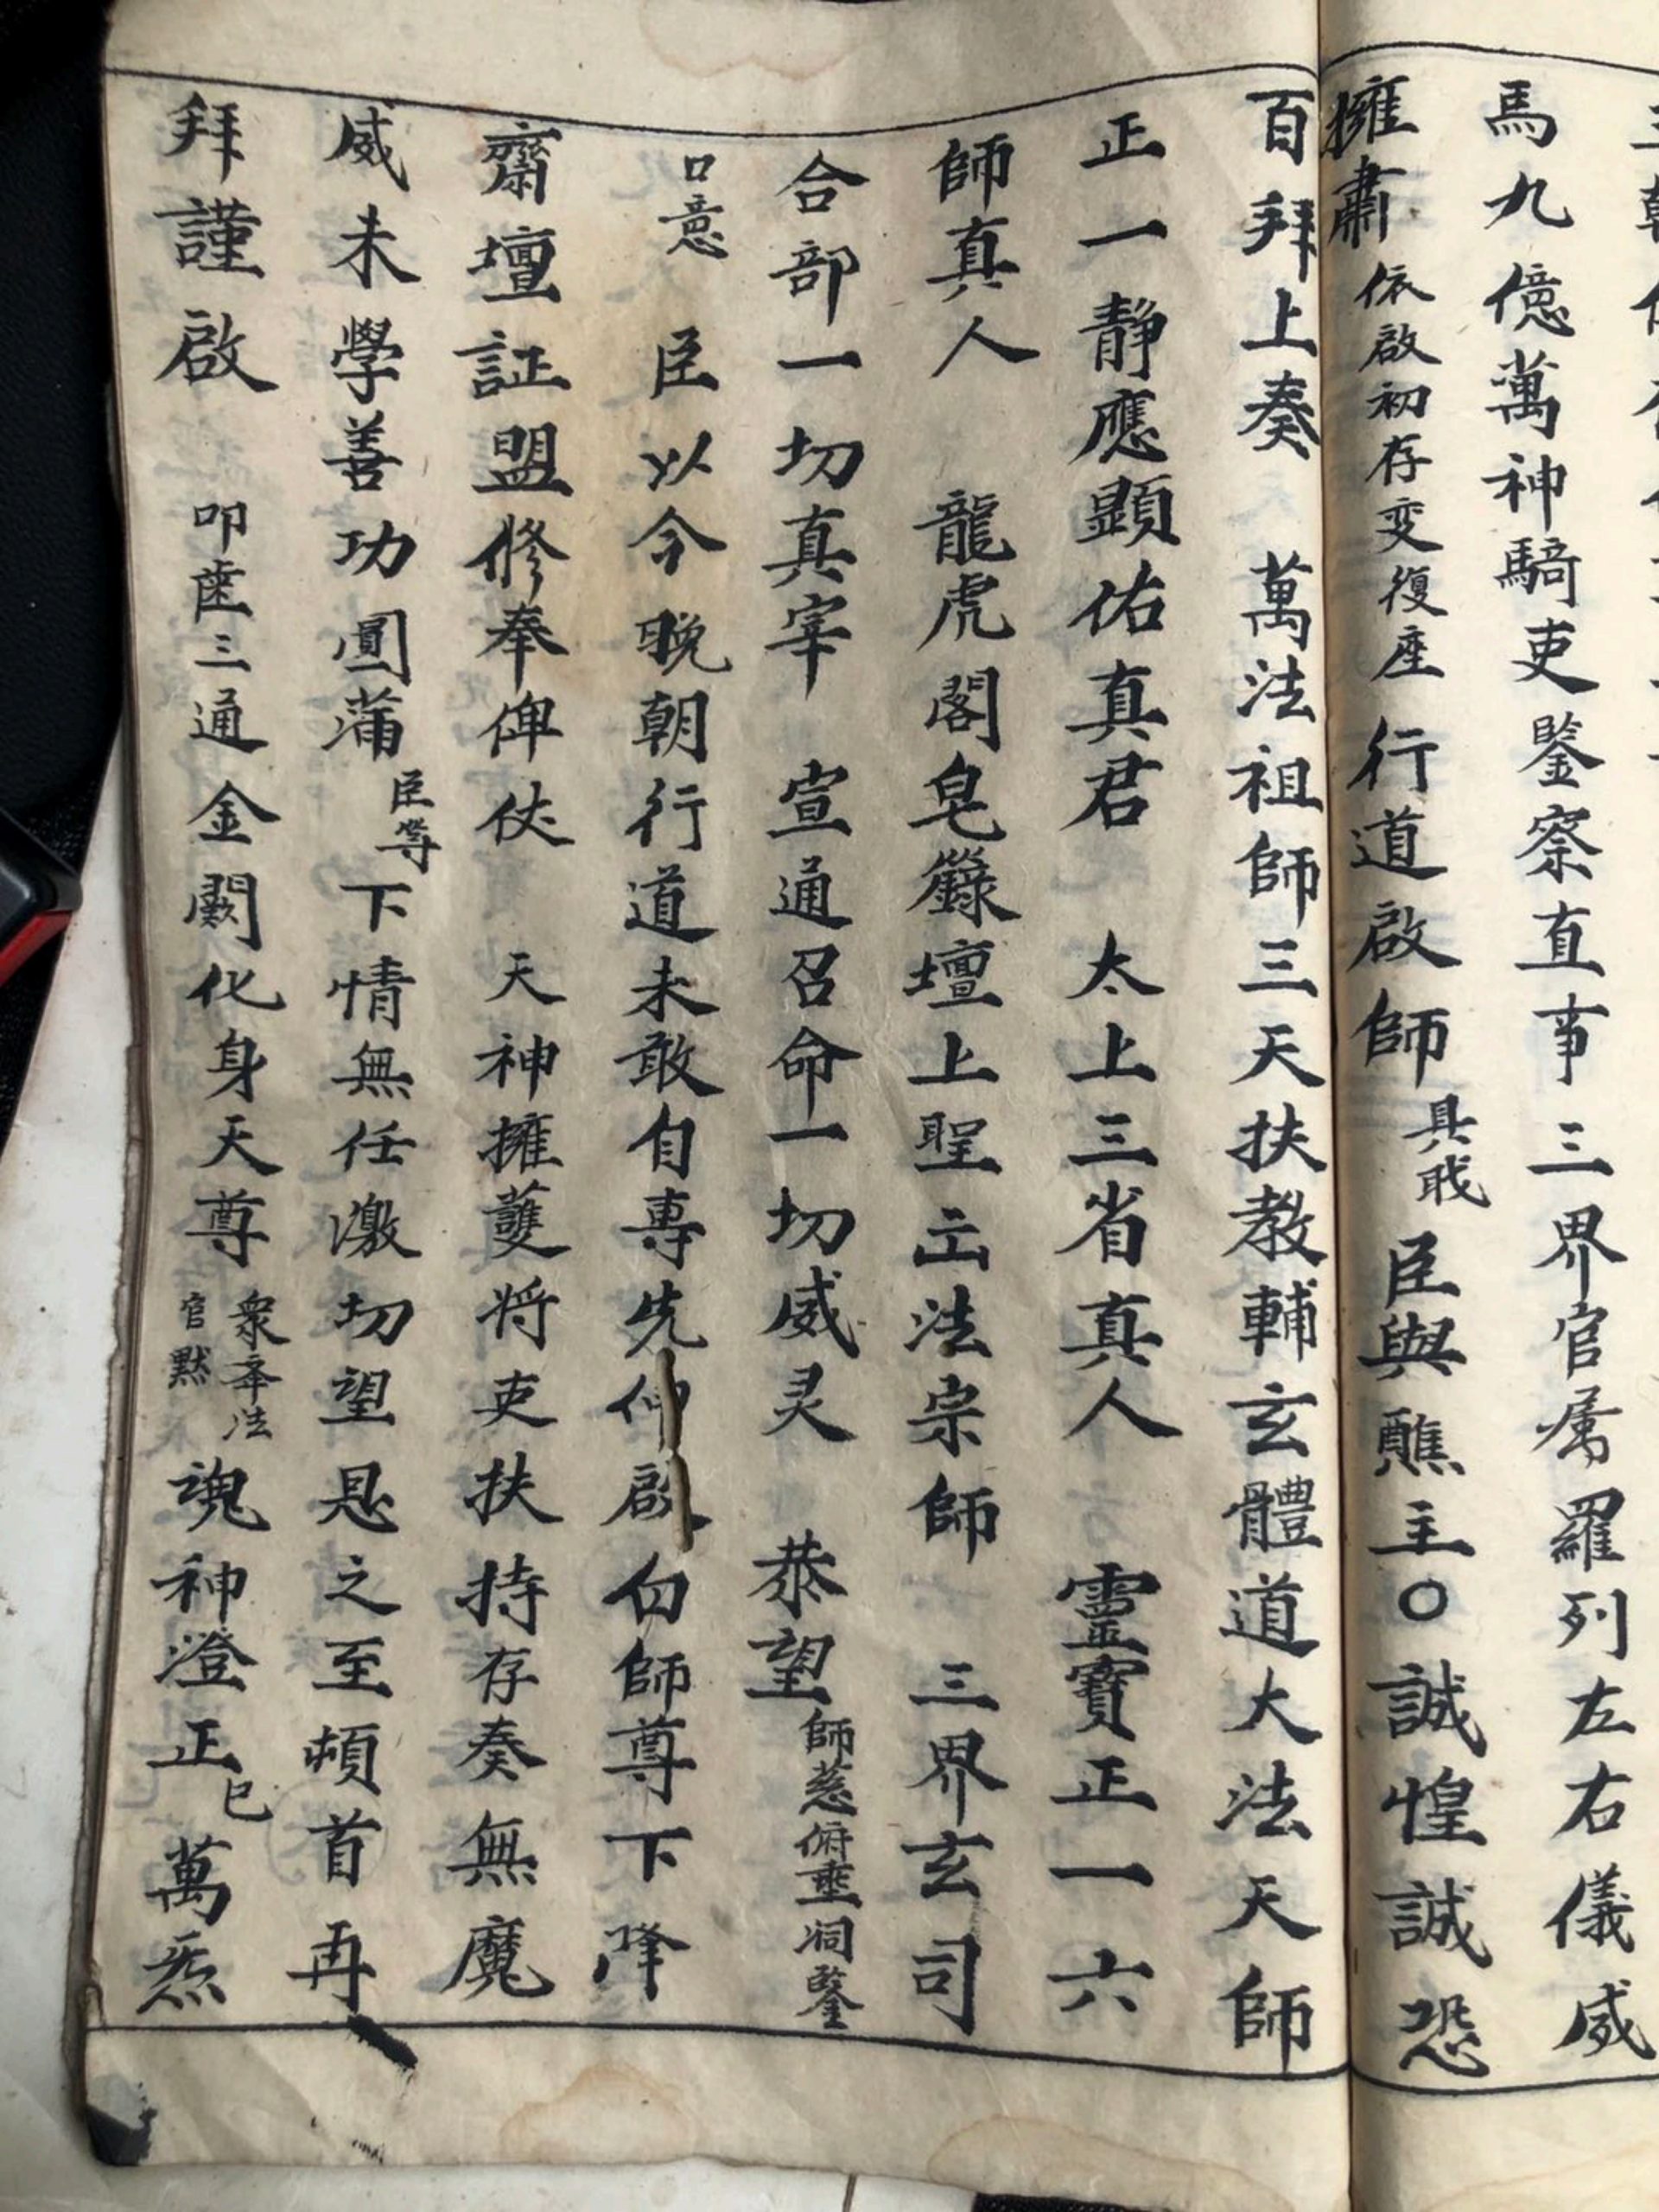 馬九億萬神騎吏鑒察直事三界官屬羅列左右儀威
擁肅依啟初存变復座行道啟師具戝臣與醮主〇誠惶誠恐
百拜上奏萬法祖師三天扶教輔玄體道大法天師
正一靜應顕佑真君太上三省真人靈寶正一六
師真人龍虎閣皂籙壇上聖立法宗師三界玄司
合部一切真宰宣通召命一切威灵恭望師慈俯垂洞鑒
口意臣以今晚朝行道未敢自專先仰啟白師尊下降
齋壇証盟修奉俾伏天神擁護将吏扶持存奏無魔
威未學善功圓蒲臣等下情無任激切望恩之至頓首再
拜謹啟叩齒三通金闕化身天尊衆奉法官黙魂神澄正已萬炁